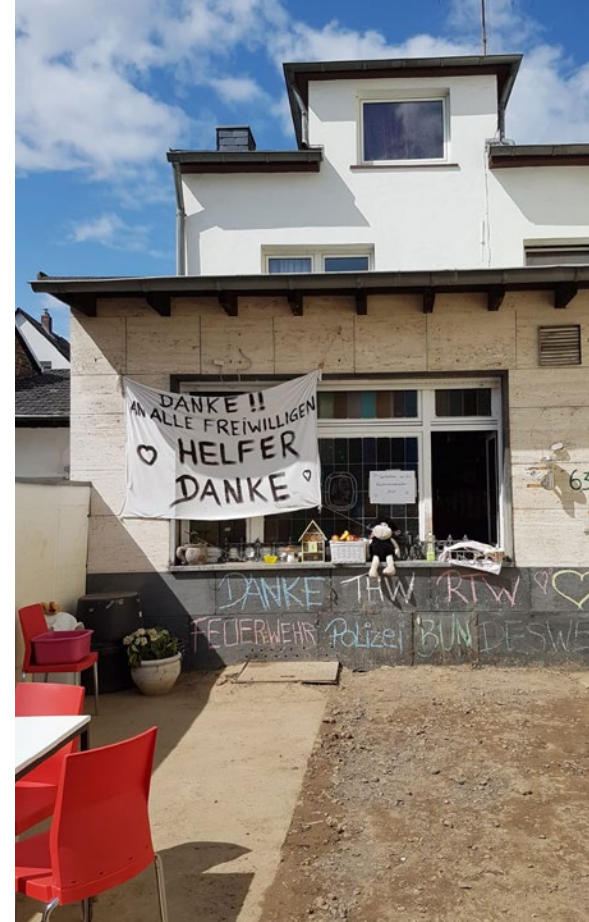 DANKE !!
AN ALLE FREIWILLIGEN
HELFER
DANKE
63
DANKE THW RTW
FEUERWEHR Polizei BUNDESWE